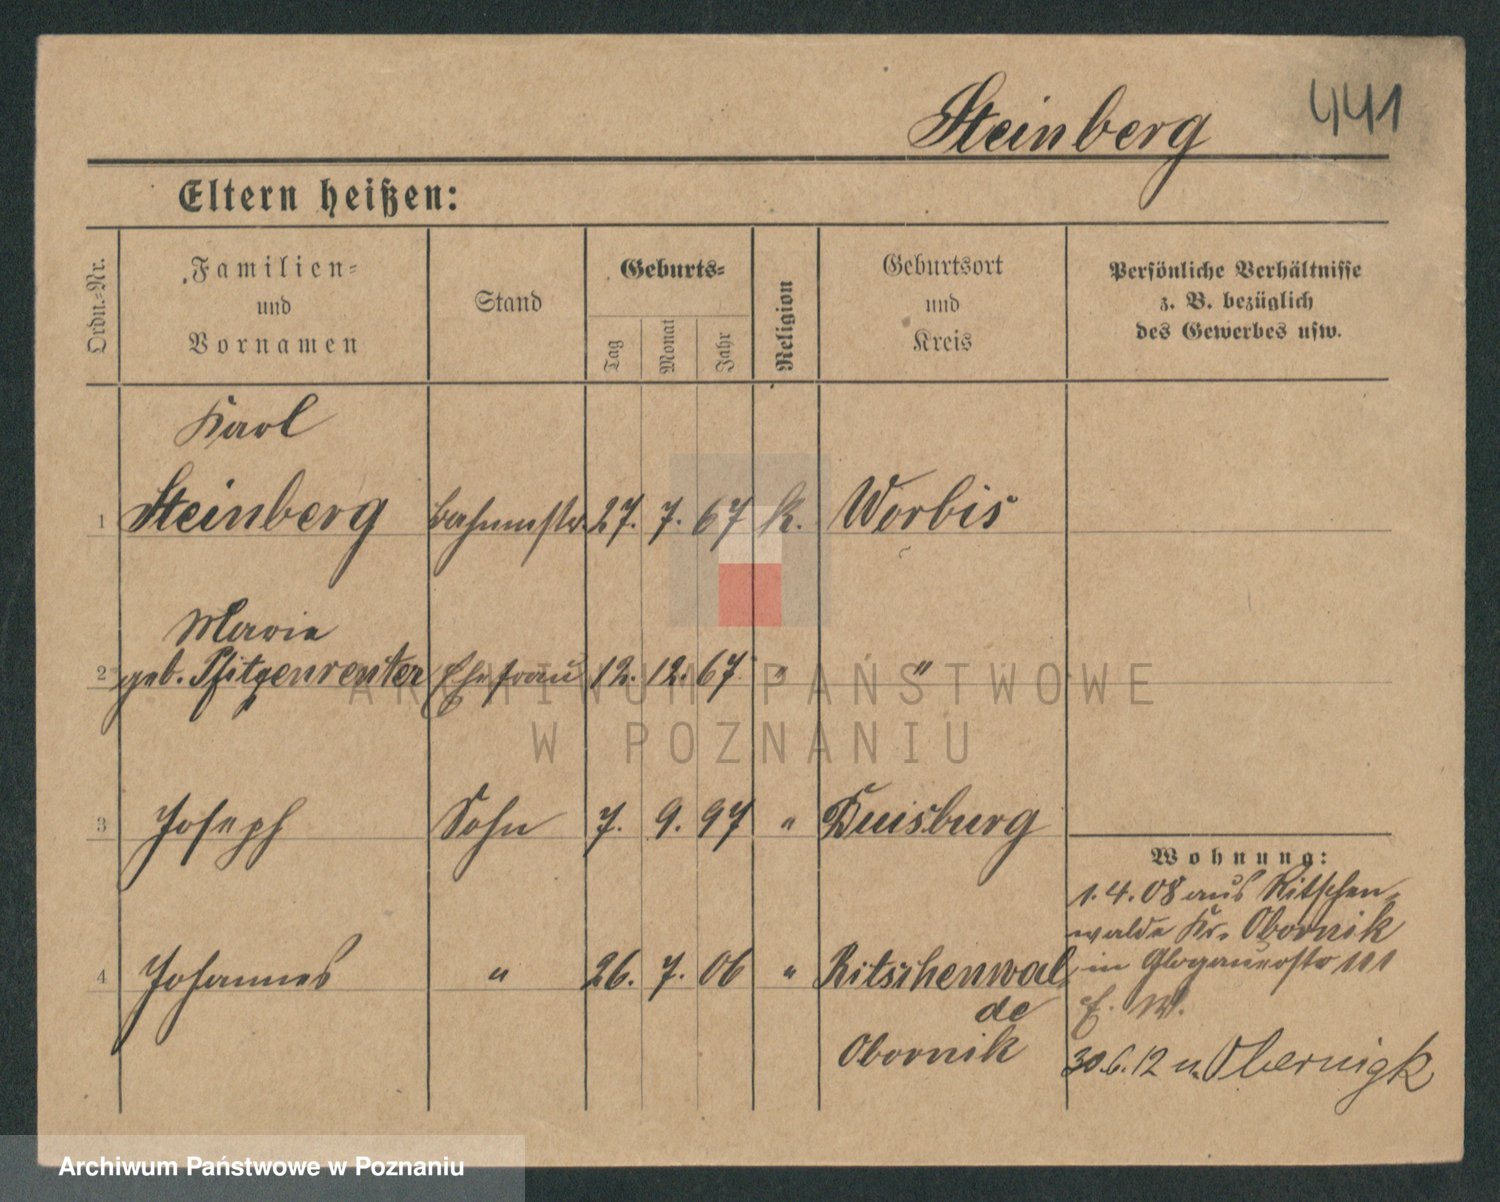 Steinberg
441
Eltern heißen:
Ordn.-Nr.
Familien-
und
Vornamen
Stand
Geburts-
Tag
Monat
Jahr
Religion
Geburtsort
und
Kreis
Persönliche Verhältnisse
z. B. bezüglich
des Gewerbes usw.
Karl
1 Steinberg Bahnmstr. 27. 7. 67 k. Worbis
Marie
2 geb. Pfitzenreuter Ehefrau 12. 12. 67 " "
3 Joseph Sohn 7. 9. 97 " Duisburg
Wohnung:
1. 4. 08 aus Ritschen-
walde Kr. Obornik
4 Johannes " 26. 7. 06 " Ritschenwal
de
Obornik
in Glogauerstr 111
E. W.
30.6.12 n. Obernigk
ARCHIWUM PAŃSTWOWE
W POZNANIU
Archiwum Państwowe w Poznaniu